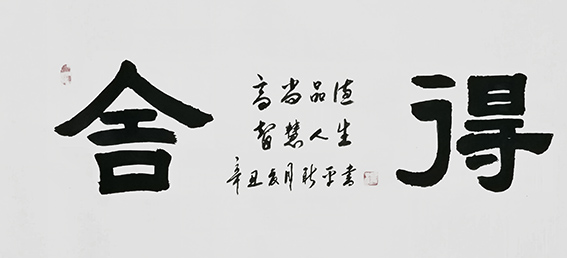 舍
高尚品德
智慧人生
辛丑夏月 平書
得